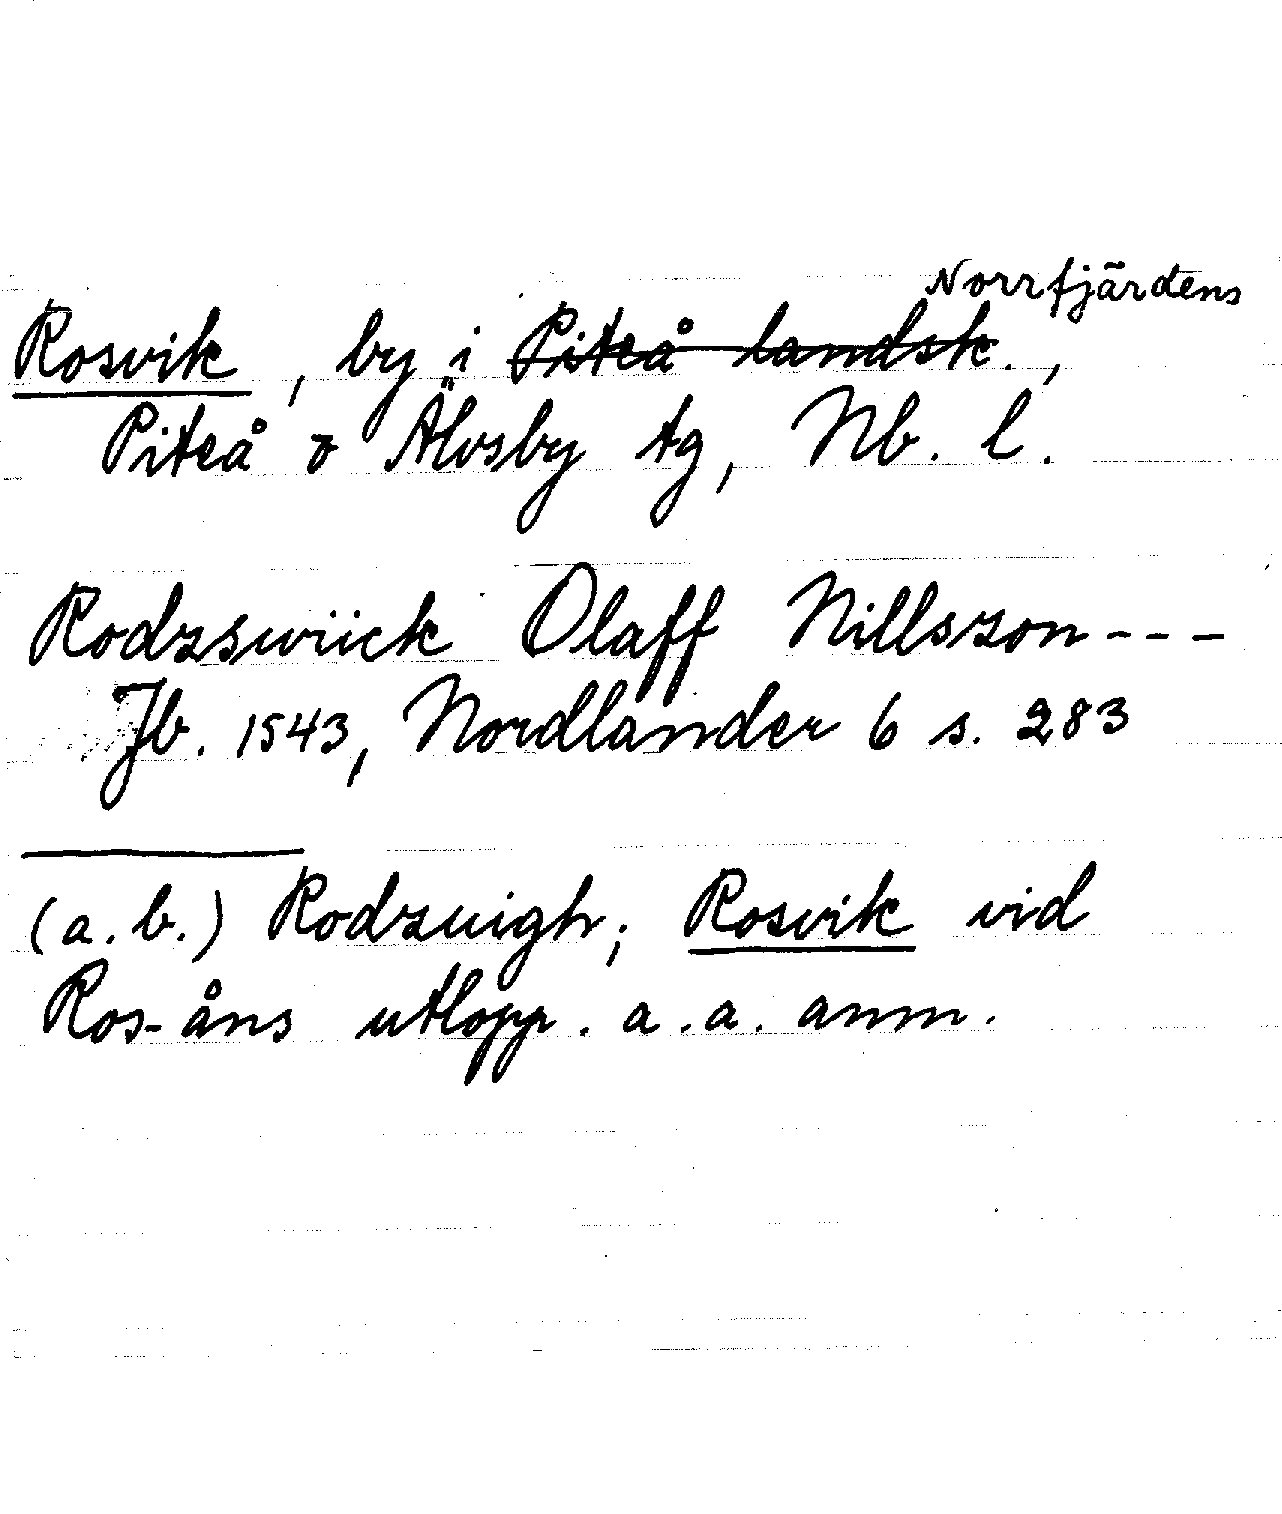 Norrfjärdens
Rosvik, by i Piteå landsk.,
Piteå o Älvsby tg, Nb. l.
Rodzswiick Olaff Nillszon---
Jb. 1543, Nordlander 6 s. 283
(a.b.) Rodzuigh; Rosvik vid
Ros-åns utlopp. a.a. anm.